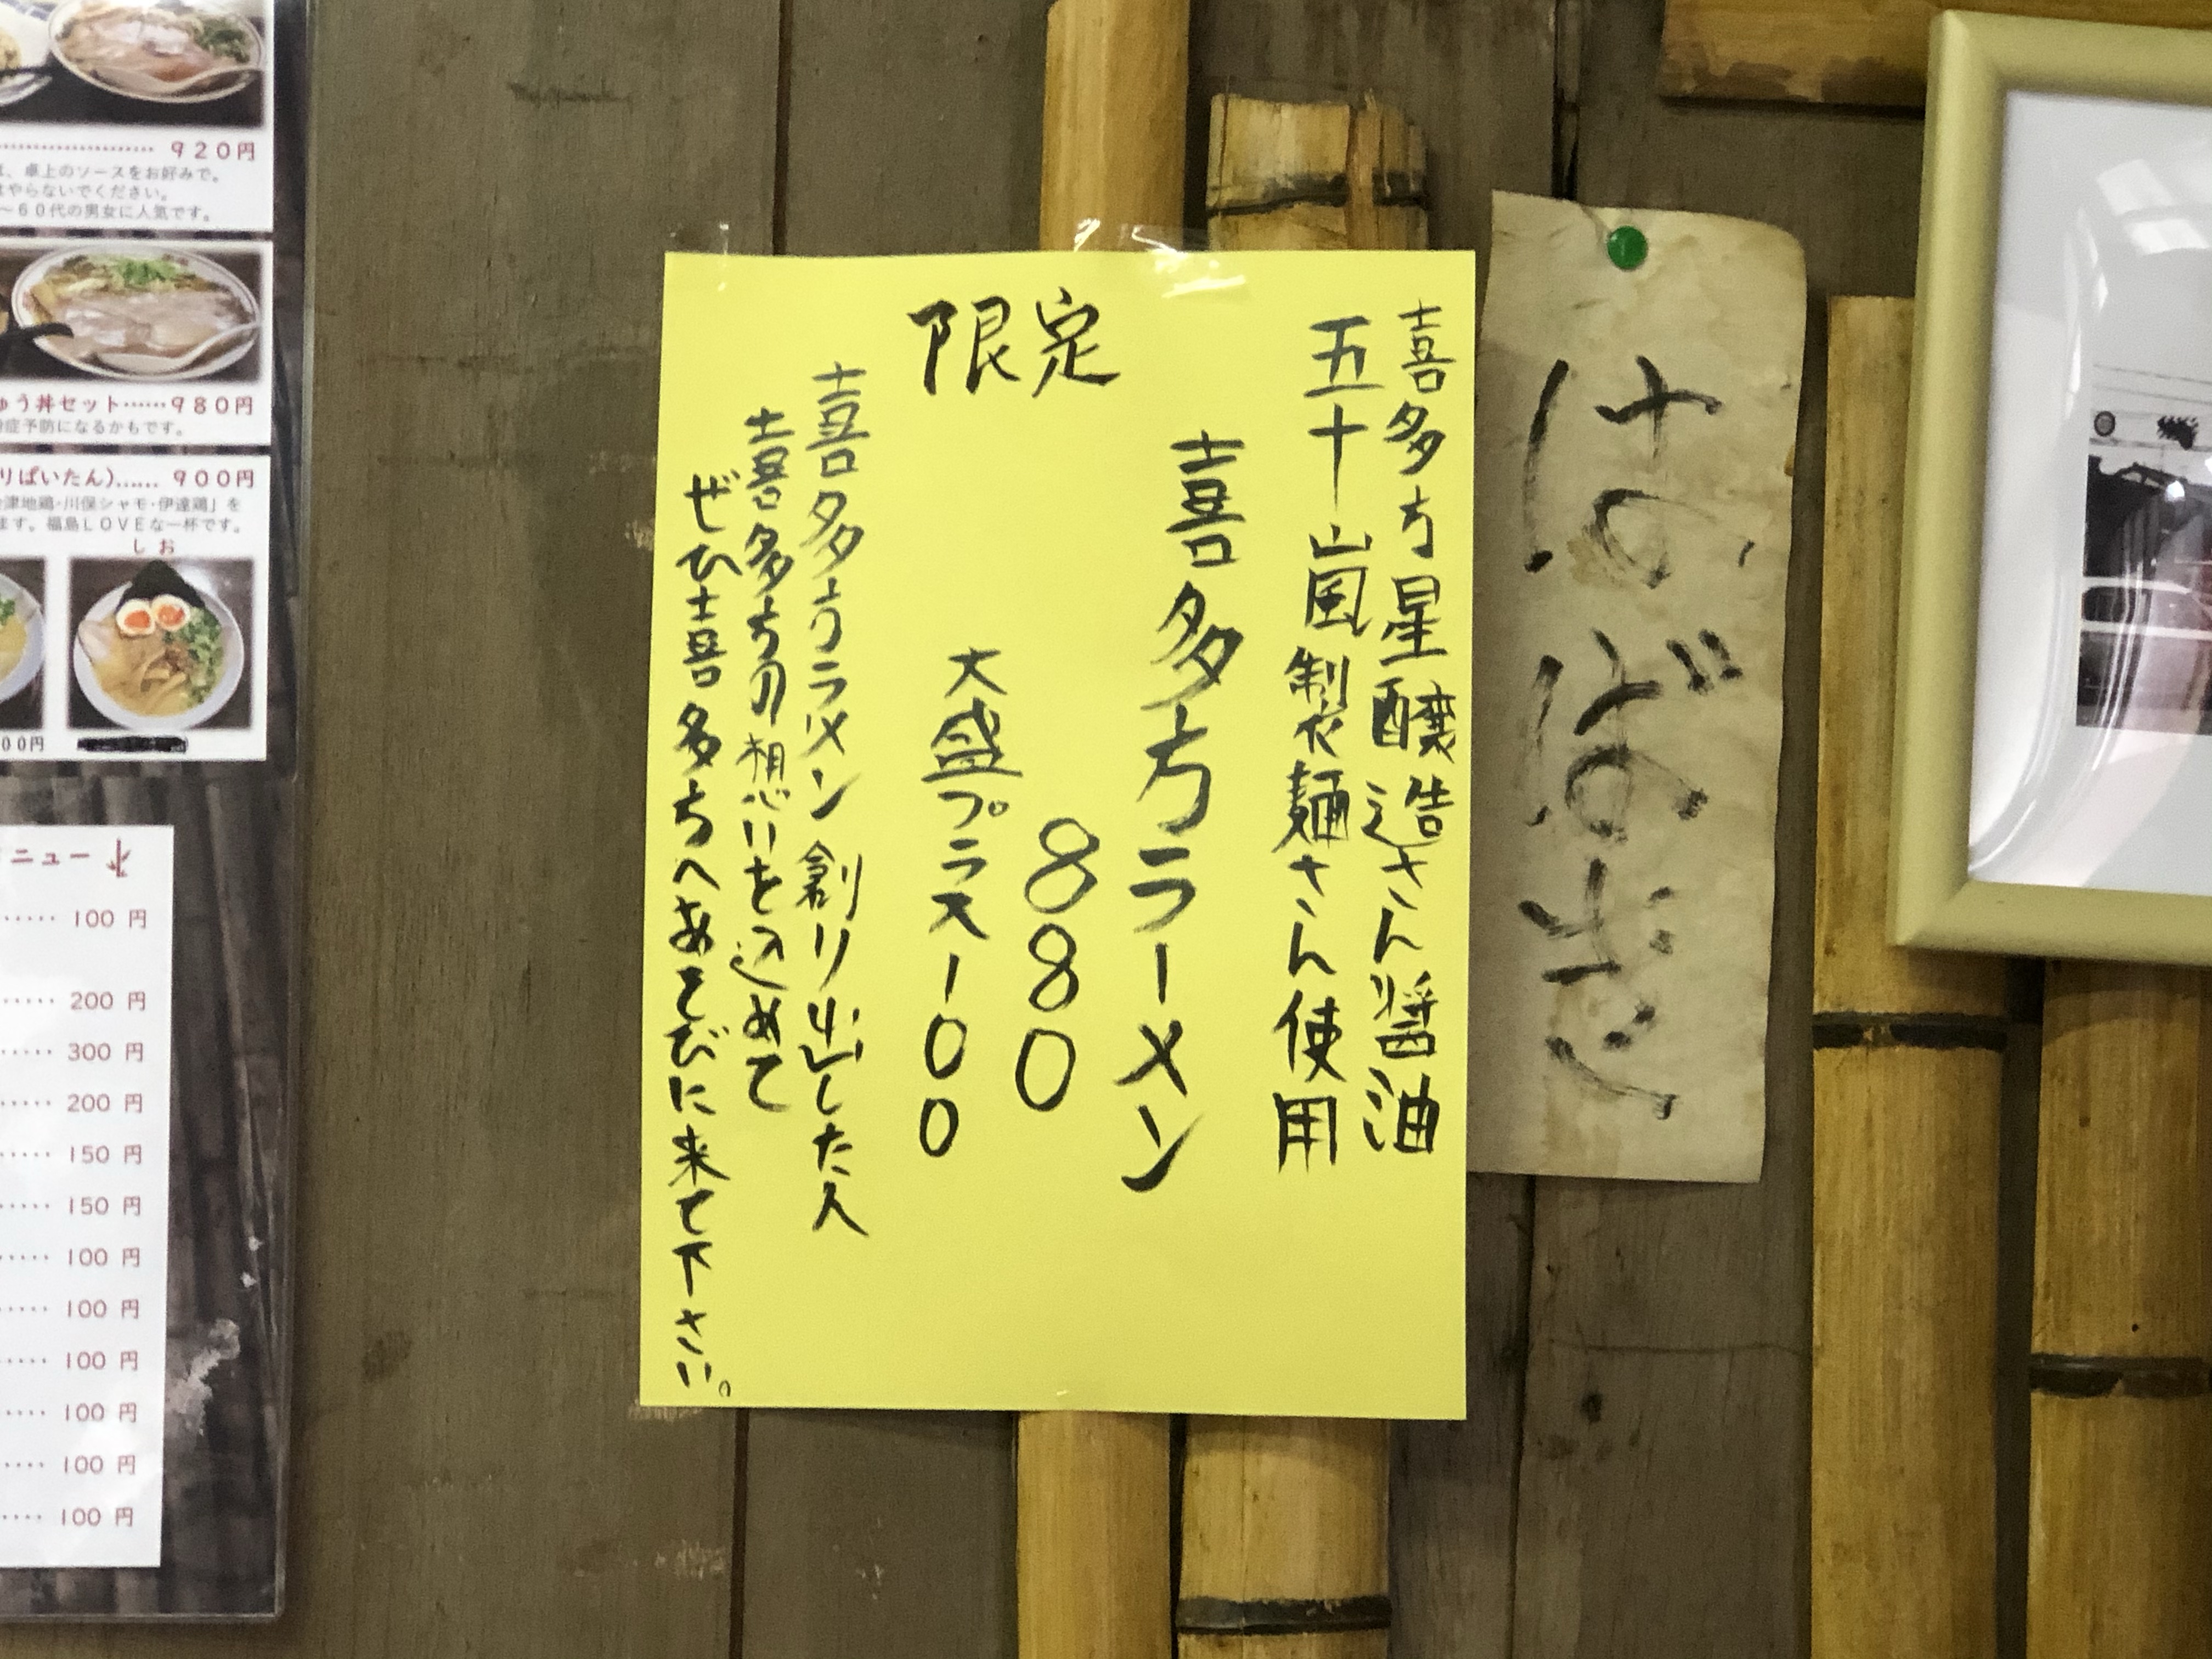 喜多方星醸造さん醤油
五十嵐製麺さん使用
喜多方ラーメン
880
限定
大盛プラス100
喜多方ラメン創り出した人
喜多方の想いを込めて
ぜひ喜多方へあそびに来て下さい。
920円
、卓上のソースをお好みで。
やらないでください。
~60代の男女に人気です。
ゅう丼セット……980円
症予防になるかもです。
りぱいたん)…… 900円
津地鶏・川俣シャモ・伊達鶏」を
ます。福島LOVEな一杯です。
しお
00円
ニュー
100 円
200 円
300 円
200 円
150 円
150 円
100 円
100 円
100 円
100 円
100 円
100 円